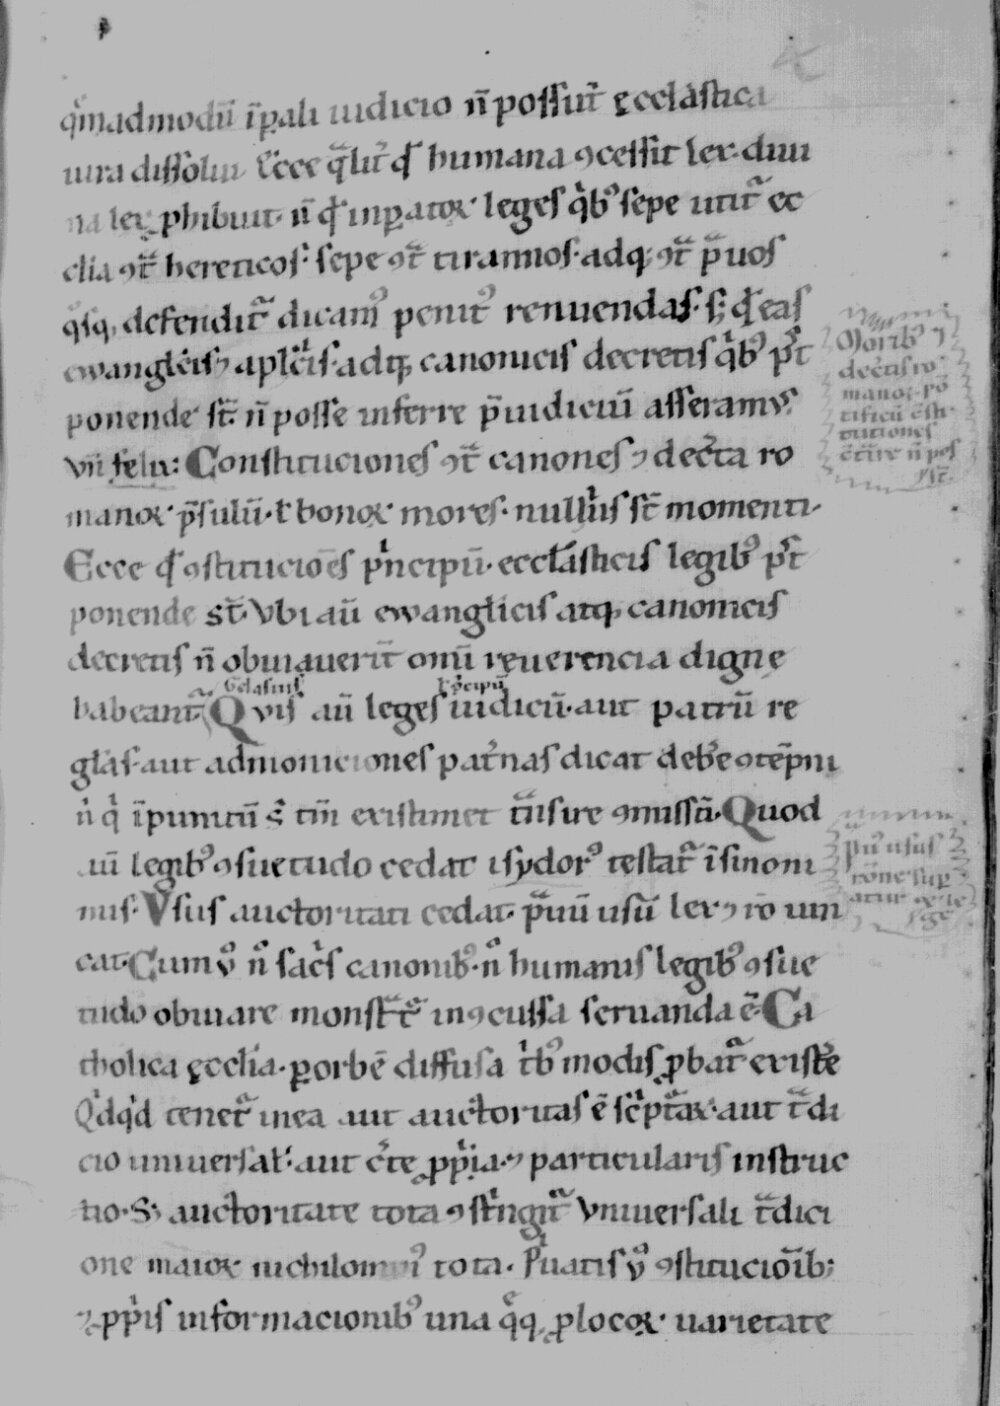 q̇madmodū īpali iudicio n̄ possut̄ ęccl̄astica
iura dissolui. Ecce q̄lit̄ qd̄ humana ꝯcessit lex. diui
na lex ꝓhibuit. n̄ qd̄ inꝑatoꝝ leges qͥbꝰ sepe utit᷑ ec
clia ꝯt̄ hereticos. sepe ꝯt̄ tirannos. adqꝫ ꝯt̄ p̄uos
qͦsqꝫ defendit᷑ dicamꝰ penitꝰ renuendas. sꝫ qd̄ eas
ewangl̄icis ⁊ apl̄icis. adqꝫ canonicis decretis qͥbꝰ pꝰt
ponende st̄. n̄ posse inferre p̄iudiciū asseramꝰ.
vn̄ felix: Constituciones ꝯt̄ canones ⁊ decr̄ta ro
manoꝝ p̄sulū. ł bonoꝝ mores. nulliꝰ st̄ momenti.
Ecce qd̄ ꝯstitucioēs pͥncipū. eccl̄asticis legibꝰ pꝰt
ponende st̄. Vbi aū ewangl̄icis atqꝫ canonicis
decretis n̄ obuiauerit̄ om̄i reuerencia digne
habeant᷑.
Gelasius
ł pͥncipū
Qvis aū leges iudicū. aut patrū re
gl̄as. aut admoniciones pat̄nas dicat deb̄e ꝯtēpni
n̄ qͥ īpunitū s̄ tm̄ existimet t̄nsire ꝯmissā. Quod
ū legibꝰ ꝯsuetudo cedat isydorꝰ testat᷑ ī sinoni
mis. Vsus auctoritati cedat. p̄uū usū lex ⁊ rō uin
cat. Cum v̄ n̄ sac̄s canonibꝰ. n̄ humanis legibꝰ ꝯsue
tudo obuiare monst̄t᷑ inꝯcussa seruanda ē. Ca
tholica ęccl̄ia. ꝑ orbē diffusa tͥbꝰ modis ꝓbat᷑ existe̅
Qͥdqͥd tenet᷑ in ea aut auctoritas ē scͥpt̄aꝝ. aut t̄di
cio uniuersal̄. aut c̄te ꝓpͥa. ⁊ particularis instruc
tio. Sꝫ auctoritate tota ꝯstͥngit᷑ Vniuersali t̄dici
one maioꝝ nichilominꝰ tota. Pͥuatis v̄ ꝯstitucioīb;
⁊ ꝓpͥis informacionibꝰ una q̄qꝫ ꝓ locoꝝ uarietate
Moribꝰ ⁊
decr̄tis ro
manoꝝ pō
tificū ꝯsti
tutiones
ꝯt̄ire n̄ pos
st̄.
p̄uꝰ usus
rōne sup
atur ⁊ le
ge